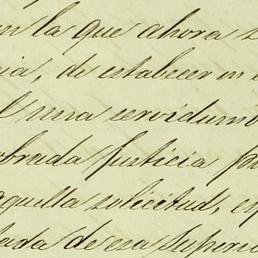 en la que ahora s
cia, de establecer en e
una servidumb
obrada Justicia p
aquella solicitud, es
lada de esa Superio